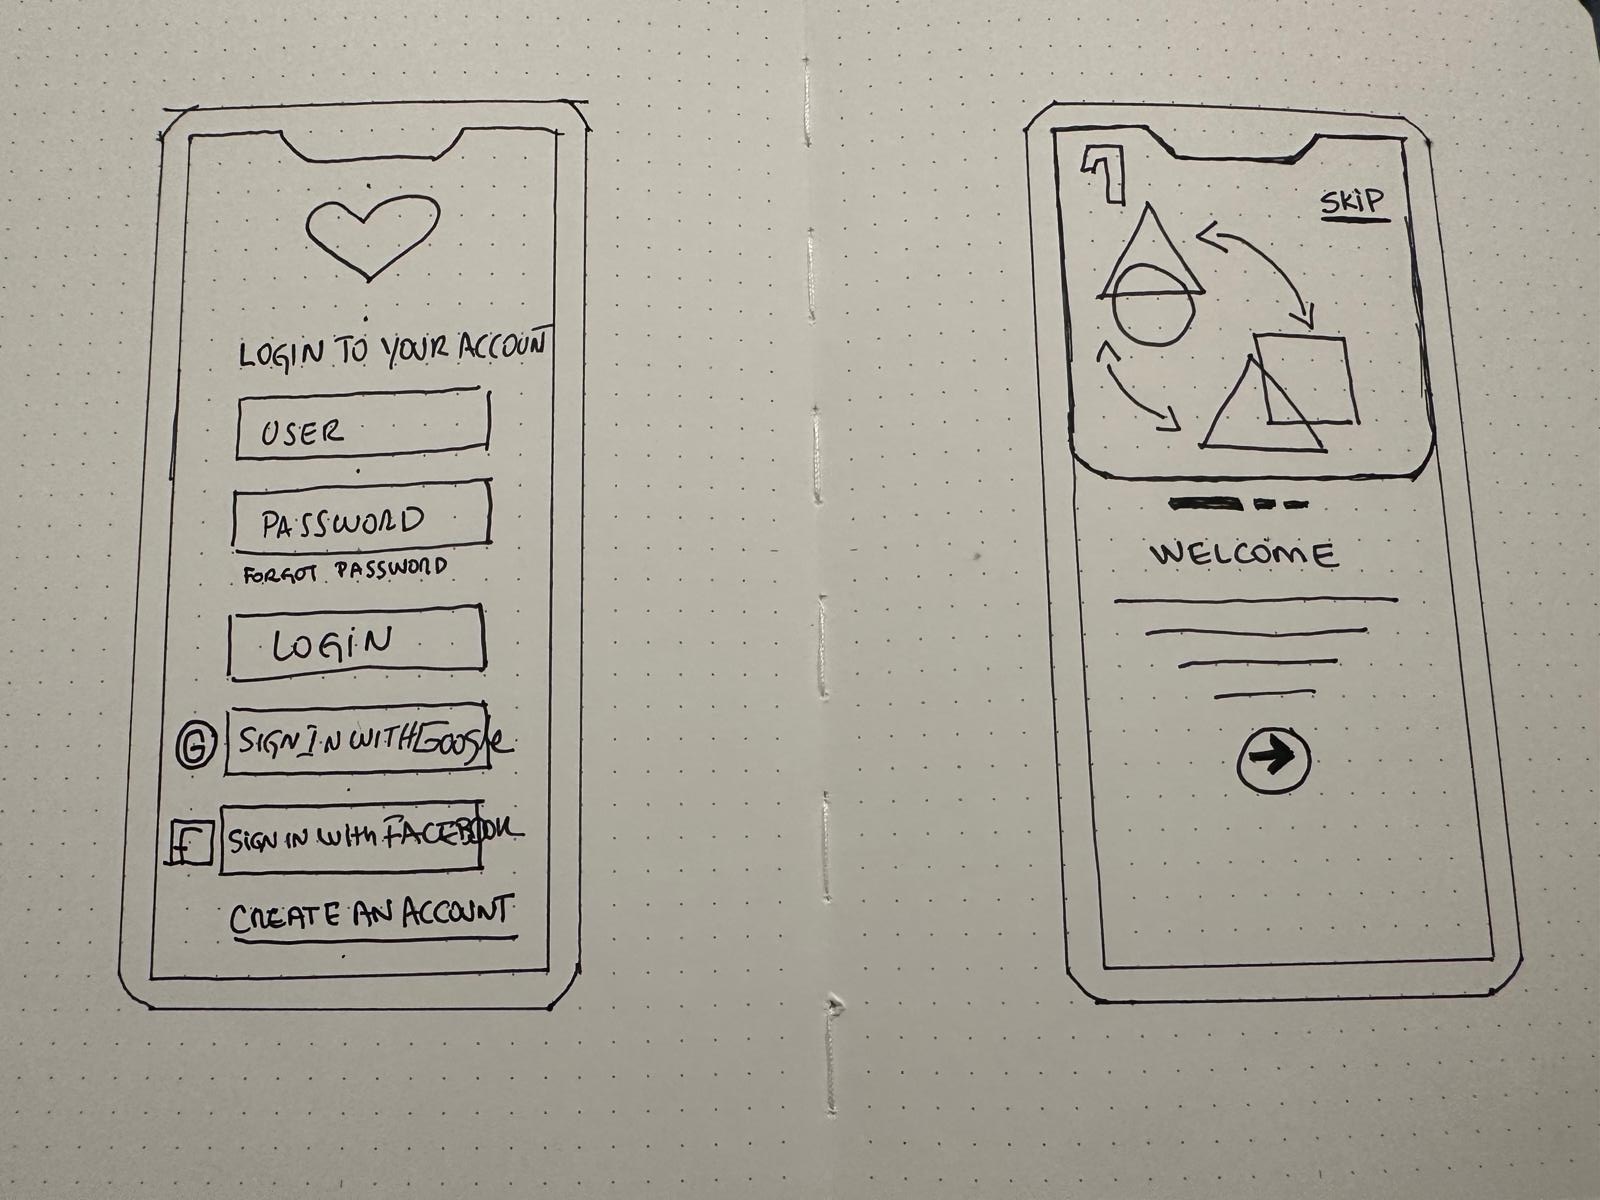 LOGIN TO YOUR ACCOUNT
USER
PASSWORD
FORGOT PASSWORD
LOGIN
G SIGN IN WITH GOOGLE
F SIGN IN WITH FACEBOOK
CREATE AN ACCOUNT
1
SKIP
WELCOME